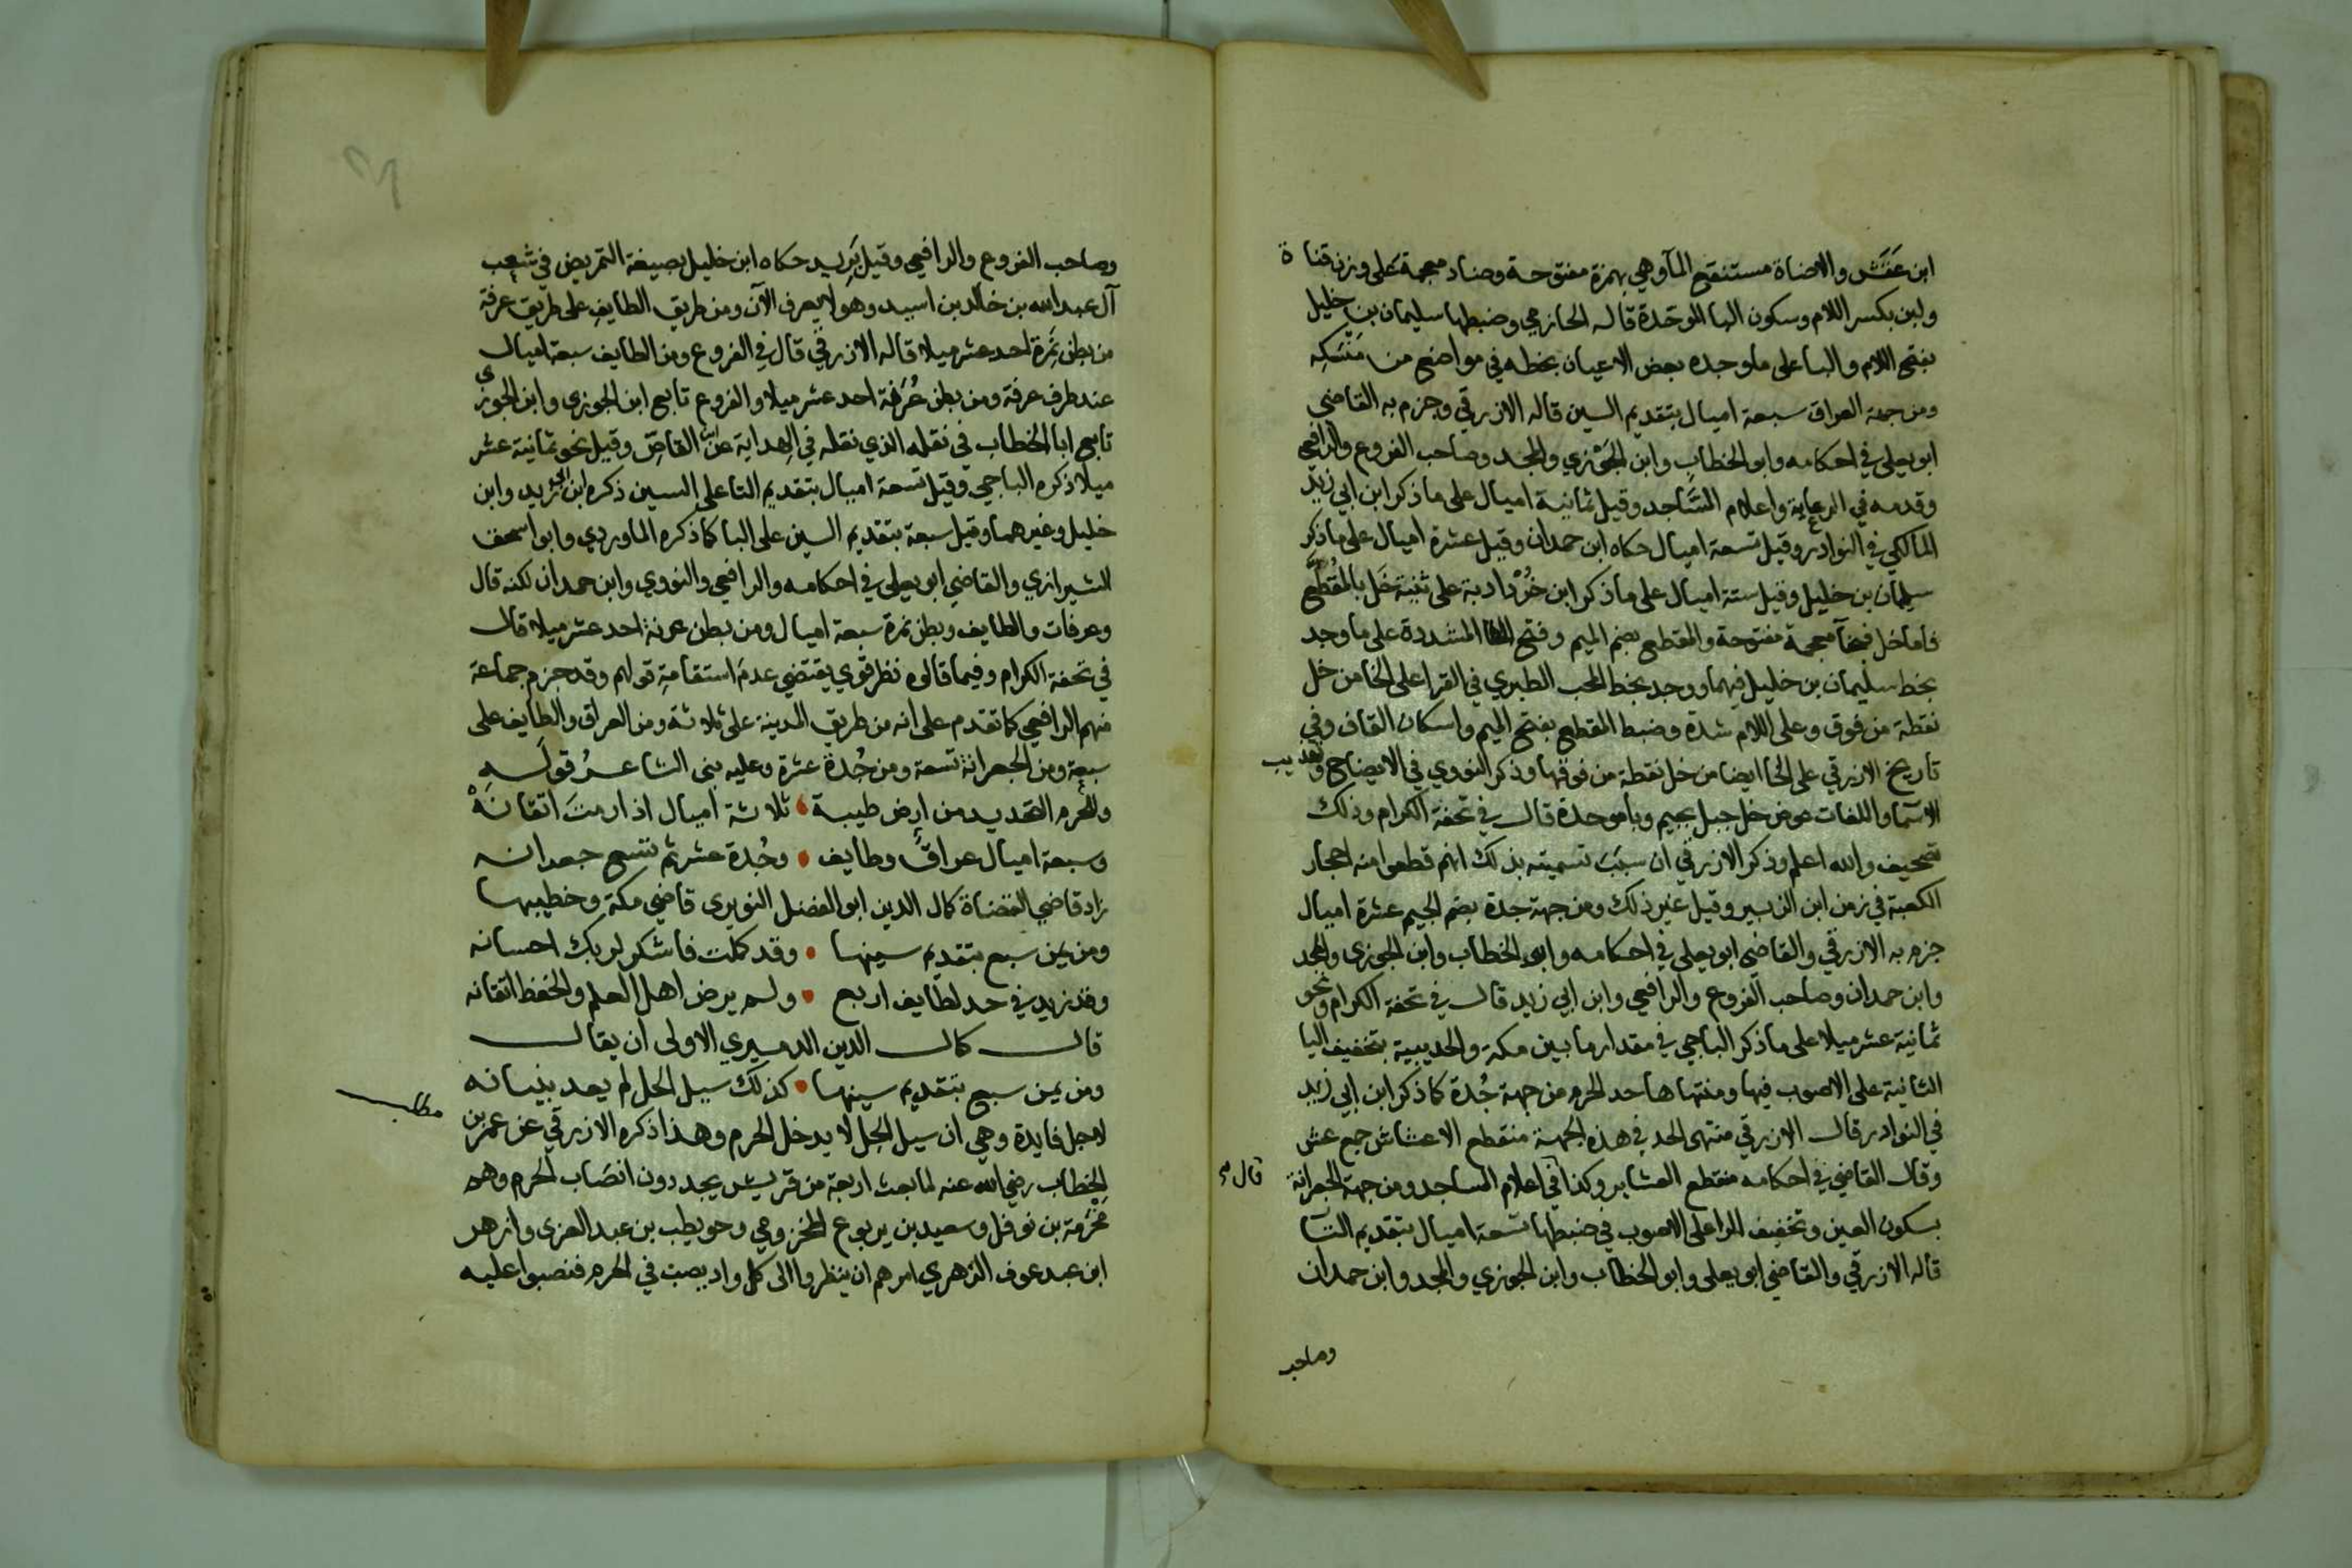 ابن عَفَش والاضاة مستنقع المآ وهي بهمزة مفتوحة وضاد معجمة على وزن قناة
ولبن بكسر اللام وسكون البا الموحّدة قاله الحازمي وضبطها سليمان بن خليل
بفتح اللام والبا على ما وجده بعض الاعيان بخطه في مواضع من مَنْسَكِهِ
ومن جهة العراق سبعة اميال بتقديم السين قاله الازرقي وجزم به القاضي
ابو يعلى في احكامه وابو الخطاب وابن الجَوْزي والمجد وصاحب الفروع والرافعي
وقدمه في الرعاية واعلام السَّاجد وقيل ثمانية اميال على ما ذكر ابن ابي زيد
المالكي في النوادر وقيل تسعة اميال حكاه ابن حمدان وقيل عشرة اميال على ما ذكر
سليمان بن خليل وقيل ستة اميال على ما ذكر ابن خُرْدادبة على ثنية خَل بالمُقَطَّع
فاما خل فبخآ معجمة مفتوحة والمقطع بضم الميم وفتح الطا المشددة على ما وجد
بخط سليمان بن خليل فيهما ووجد بخط المحب الطبري في القرا على الخا من خل
نقطة من فوق وعلى اللام شدة وضبط المقطع بفتح الميم واسكان القاف وفي
تاريخ الازرقي على الخا ايضا من خل نقطة من فوقها وذكر النووي في الايضاح وتهذيب
الاسَمآ واللغات عوض خل جبل بجيم وبا موحدة قال في تحفة الكرام وذلك
تصحيف والله اعلم وذكر الازرقي ان سبَبَ تسميته بذلك انهم قطعوا منه احجار
الكعبة في زمن ابن الزبير وقيل غير ذلك ومن جهة جدة بضم الجيم عشرة اميال
جزم به الازرقي والقاضي ابو يعلى في احكامه وابو الخطاب وابن الجوزي والمجد
وابن حمدان وصاحب الفروع والرافعي وابن ابي زيد قال في تحفة الكرام ونحو
ثمانية عشر ميلا على ما ذكر الباجي في مقدار ما بين مكة والحديبية بتخفيف اليا
الثانية على الاصوب فيها ومنتهاها حد الحرم من جهة جُدة كما ذكر ابن ابي زيد
في النوادر قال الازرقي منتهى الحد في هذه الجهة منقطع الاعشاش جمع عش
وقال القاضي في احكامه منقطع العشاير وكذا في اعلام الساجد ومن جهة الجعرانة
قال
بسكون العين وتخفيف الرا على الاصوب في ضبطها تسعة اميال بتقديم التا
قاله الازرقي والقاضي ابو يعلى وابو الخطاب وابن الجوزي والمجد وابن حمدان
وصاحب
وصاحب الفروع والرافعي وقيل بَرِيد حكاه ابن خليل بصيغة التمريض في شعب
آل عبد الله بن خالد بن اسيد وهو لا يعرف الآن ومن طريق الطايف على طريق عرفة
من بطن نَمِرَة احد عشر ميلا قاله الازرقي قال في الفروع ومن الطايف سبعة اميال
عند طرف عرفة ومن بطن عُرَنَة احد عشر ميلا والفروع تابع ابن الجوزي وابن الجوزي
تابع ابا الخطاب في نقله الذي نقله في الهداية عن القاضي وقيل نحو ثمانية عشر
ميلا ذكره الباجي وقيل تسعة اميال بتقديم التا على السين ذكره ابن ابي زيد وابن
خليل وغيرهما وقيل سبعة بتقديم السين على البا كما ذكره الماوردي وابو اسحق
الشيرازي والقاضي ابو يعلى في احكامه والرافعي والنووي وابن حمدان لكنه قال
وعرفات والطايف وبطن نمرة سبعة اميال ومن بطن عرنة احد عشر ميلا قال
في تحفة الكرام وفيما قالوه نظر قوي يقتضي عدمَ استقامةِ قولهم وقد جزم جماعة
منهم الرافعي كما تقدم على انه من طريق المدينة على ثلاثة ومن العراق والطايف على
سبعة ومن الجعرانة تسعة ومن جُدة عشرة وعليه بنى الشاعرُ قولَه
وللحرم التحديد من ارض طيبة ثلاثة اميال اذا رمتَ اتقانَهْ
وسبعة اميال عراقٌ وطايف وجُدة عشر ثم تسع جعرانه
زاد قاضي القضاة كمال الدين ابو الفضل النويري قاضي مكة وخطيبها
ومن يمن سبع بتقديم سينها وقد كملت فاشكر لربك احسانه
وقد زيد في حد لطايف اربع ولم يرض اهل العلم والحفظ اتقانه
قال كمال الدين الدميري الاولى ان يقال
ومن يمن سبع بتقديم سينها كذلك سيل الحل لم يعد بنيانه
مطلب
لاجل فايدة وهي ان سيل الحل لا يدخل الحرم وهذا ذكره الازرقي عن عمر بن
الخطاب رضي الله عنه لما بعث اربعة من قريش يجددون انصَاب الحرم وهم
مَخْرَمة بن نوفل وسعيد بن يربوع المخزومي وحويطب بن عبد العزى وازهر
ابن عبد عوف الزهري امرهم ان ينظروا الى كل واد يصب في الحرم فنصبوا عليه